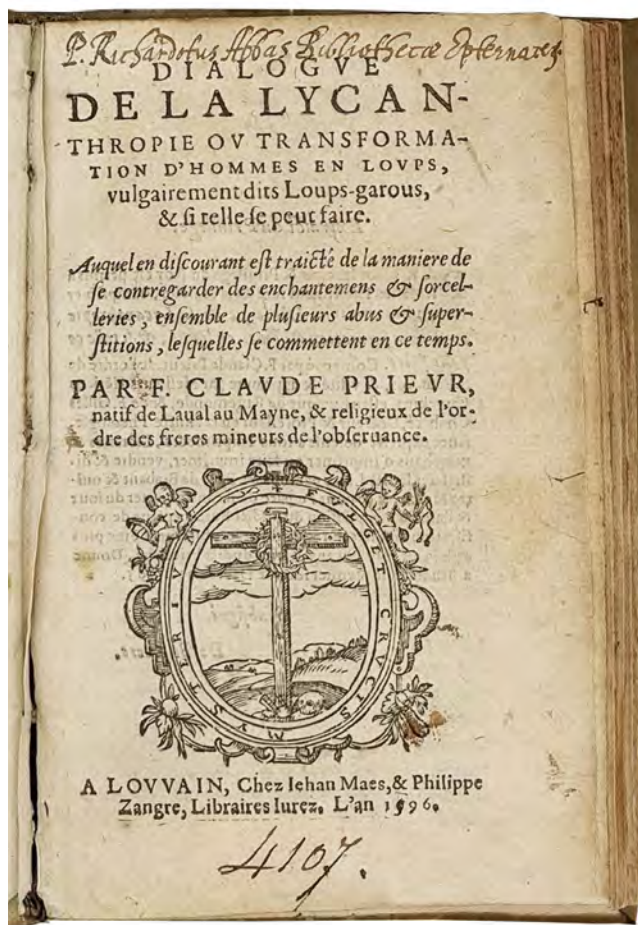 P. Richardotus Abbas Bibliothecæ Epternacen
DIALOGVE
DE LA LYCAN-
THROPIE OV TRANSFORMA-
TION D'HOMMES EN LOVPS,
vulgairement dits Loups-garous,
& ſi telle ſe peut faire.
Auquel en diſcourant eſt traicté de la maniere de
ſe contregarder des enchantemens & ſorcel-
leries, enſemble de pluſieurs abus & ſuper-
ſtitions, leſquelles ſe commettent en ce temps.
PAR F. CLAVDE PRIEVR,
natif de Laual au Mayne, & religieux de l'or-
dre des freres mineurs de l'obſeruance.
FVLGET CRVCIS MYSTERIVM
A LOVVAIN, Chez Iehan Maes, & Philippe
Zangre, Libraires Iurez. L'an 1596.
4107.